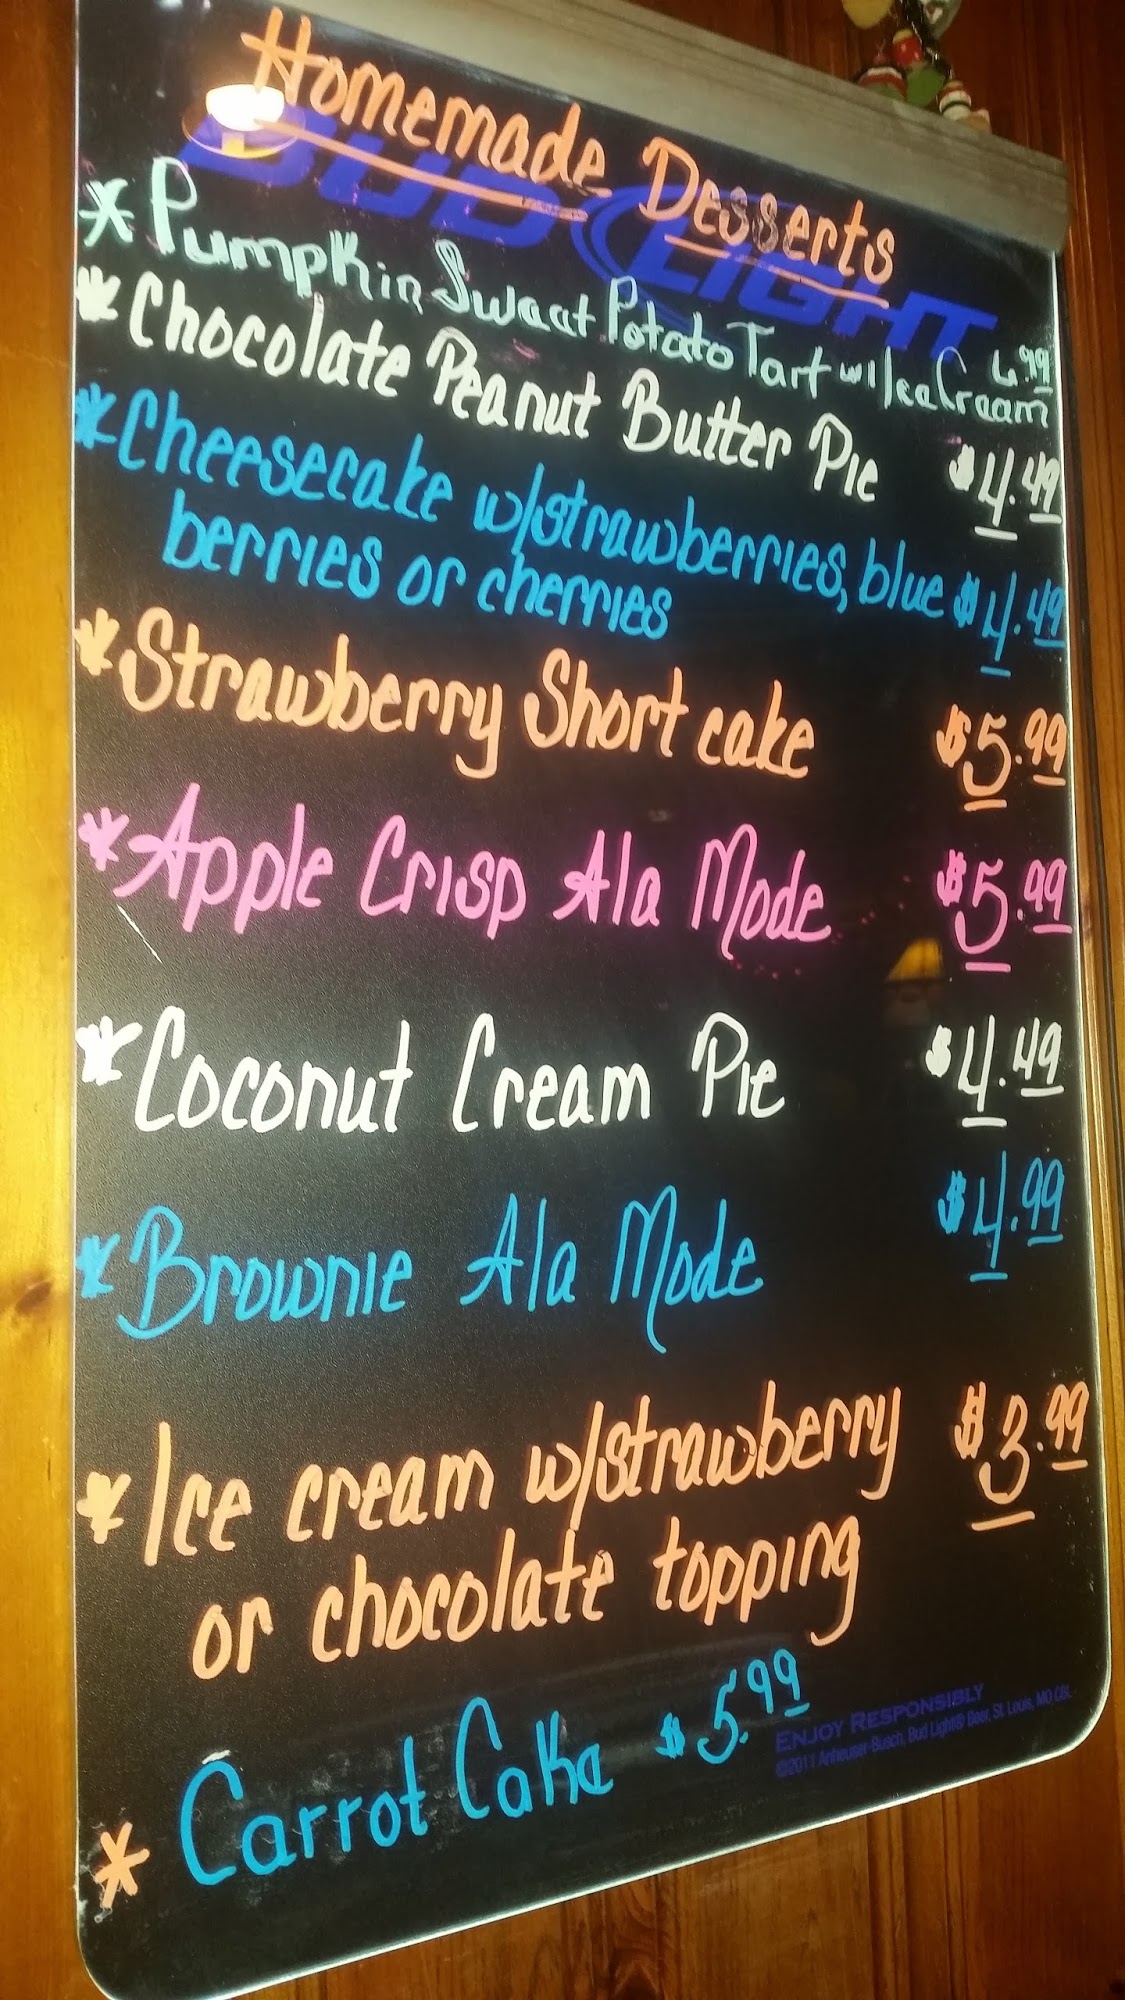 Homemade Desserts
BUD LIGHT
* Pumpkin Sweet Potato Tart w/ Ice Cream 6.99
* Chocolate Peanut Butter Pie $4.49
* Cheesecake w/strawberries, blue $4.49
berries or cherries
* Strawberry Short cake $5.99
* Apple Crisp Ala Mode $5.99
* Coconut Cream Pie $4.49
* Brownie Ala Mode $4.99
* Ice cream w/strawberry $3.99
or chocolate topping
* Carrot Cake $5.99
ENJOY RESPONSIBLY
©2011 Anheuser-Busch, Bud Light® Beer, St. Louis, MO